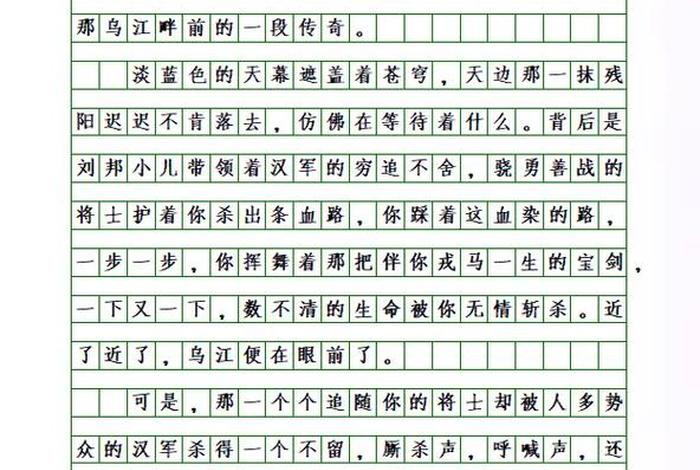 那乌江畔前的一段传奇。
淡蓝色的天幕遮盖着苍穹，天边那一抹残
阳迟迟不肯落去，仿佛在等待着什么。背后是
刘邦小儿带领着汉军的穷追不舍，骁勇善战的
将士护着你杀出条血路，你踩着这血染的路，
一步一步，你挥舞着那把伴你戎马一生的宝剑，
一下又一下，数不清的生命被你无情斩杀。近
了近了，乌江便在眼前了。
可是，那一个个追随你的将士却被人多势
众的汉军杀得一个不留，厮杀声，呼喊声，还